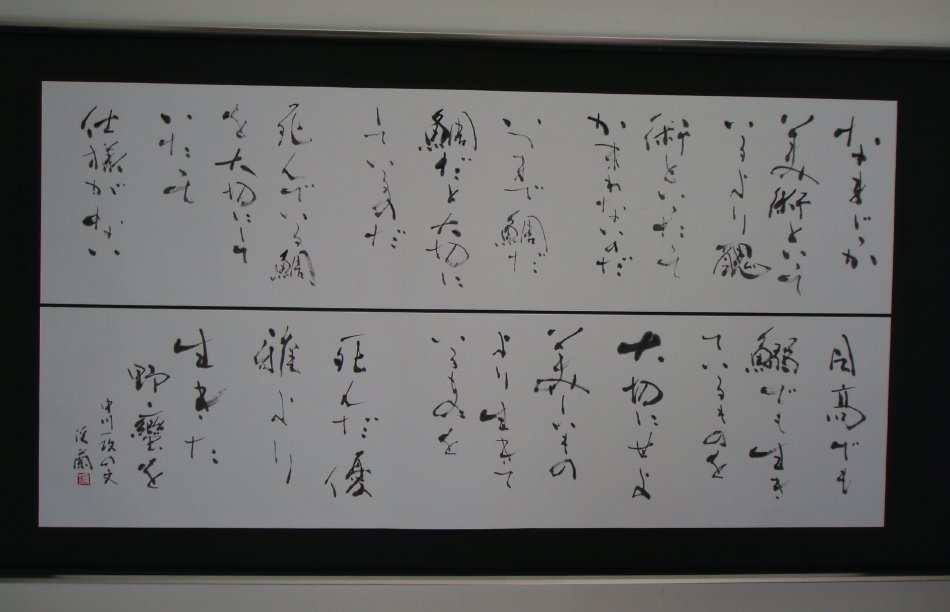 なまじっか
美術といって
いるより醜
術といったって
かまわないのだ
いつまで鯛だ
鯛だと大切に
しているのだ
死んでいる鯛
を大切にして
いたって
仕様がない
目高でも
鰯でも生き
ているものを
大切にせよ
美しいもの
より生きて
いるものを
死んだ優
雅より
生きた
野蠻を
中川一政の文
蘭